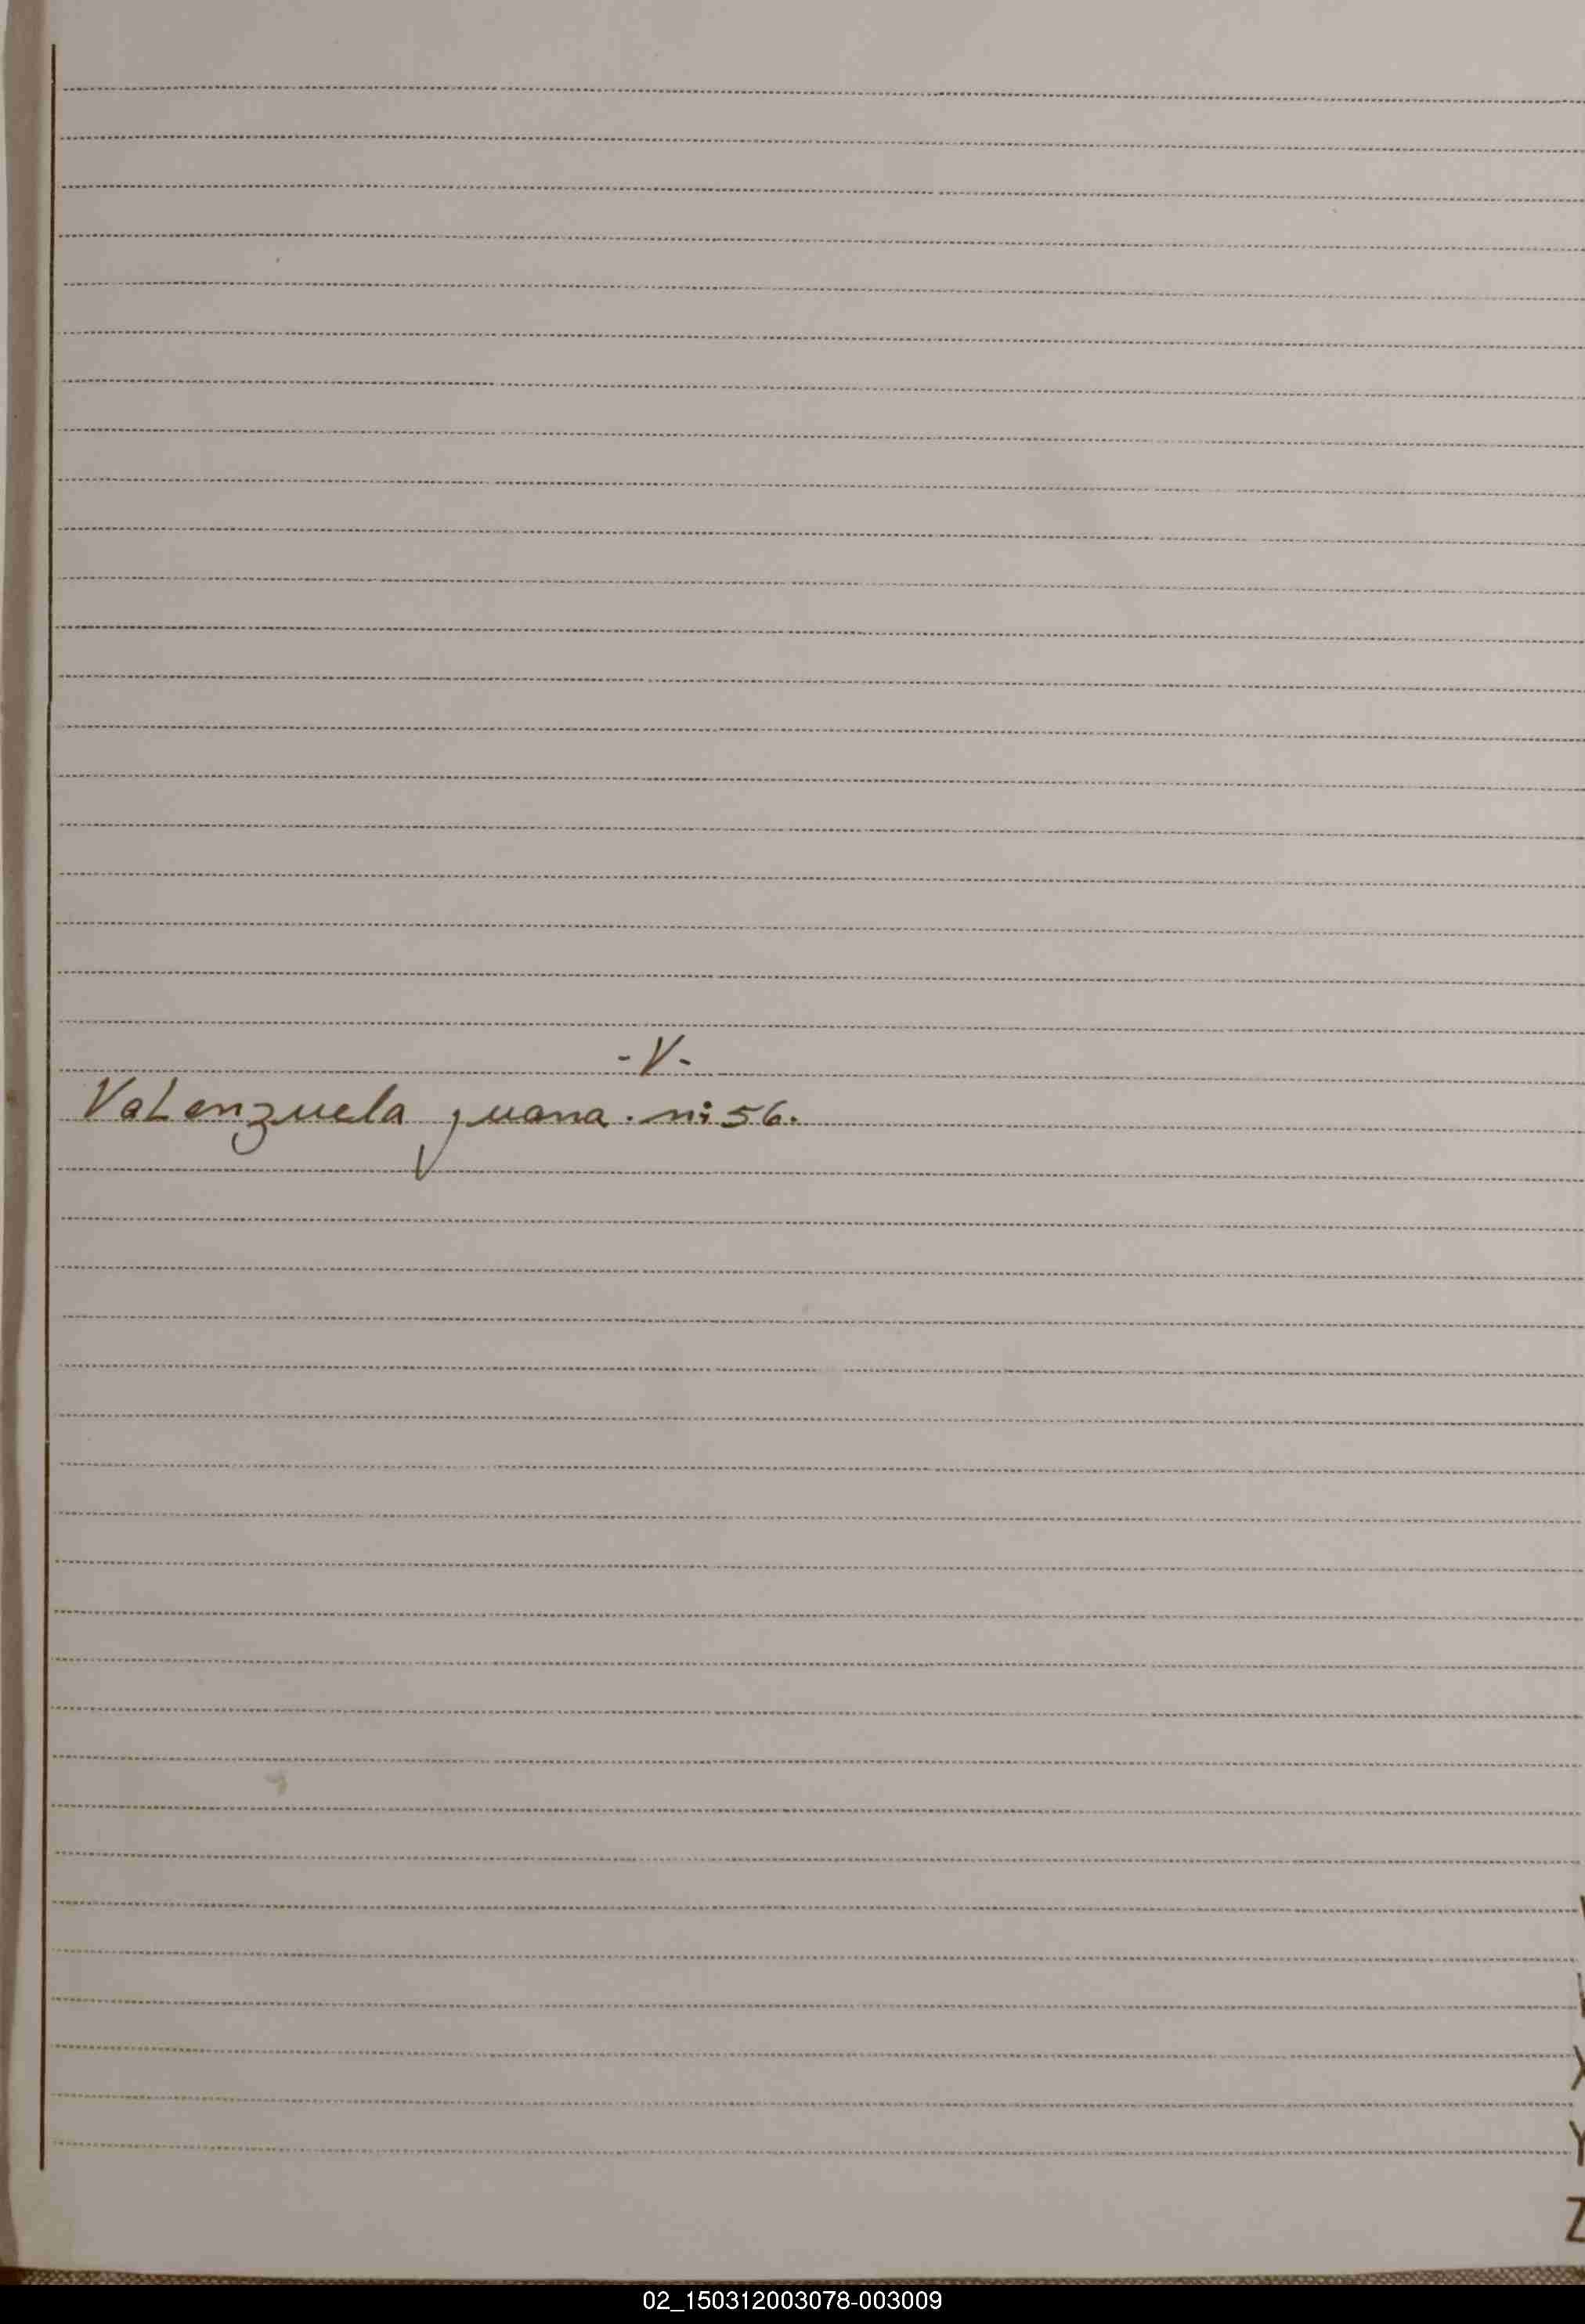 -V-
Valenzuela juana. nº 56.
X
Y
Z
02_150312003078-003009